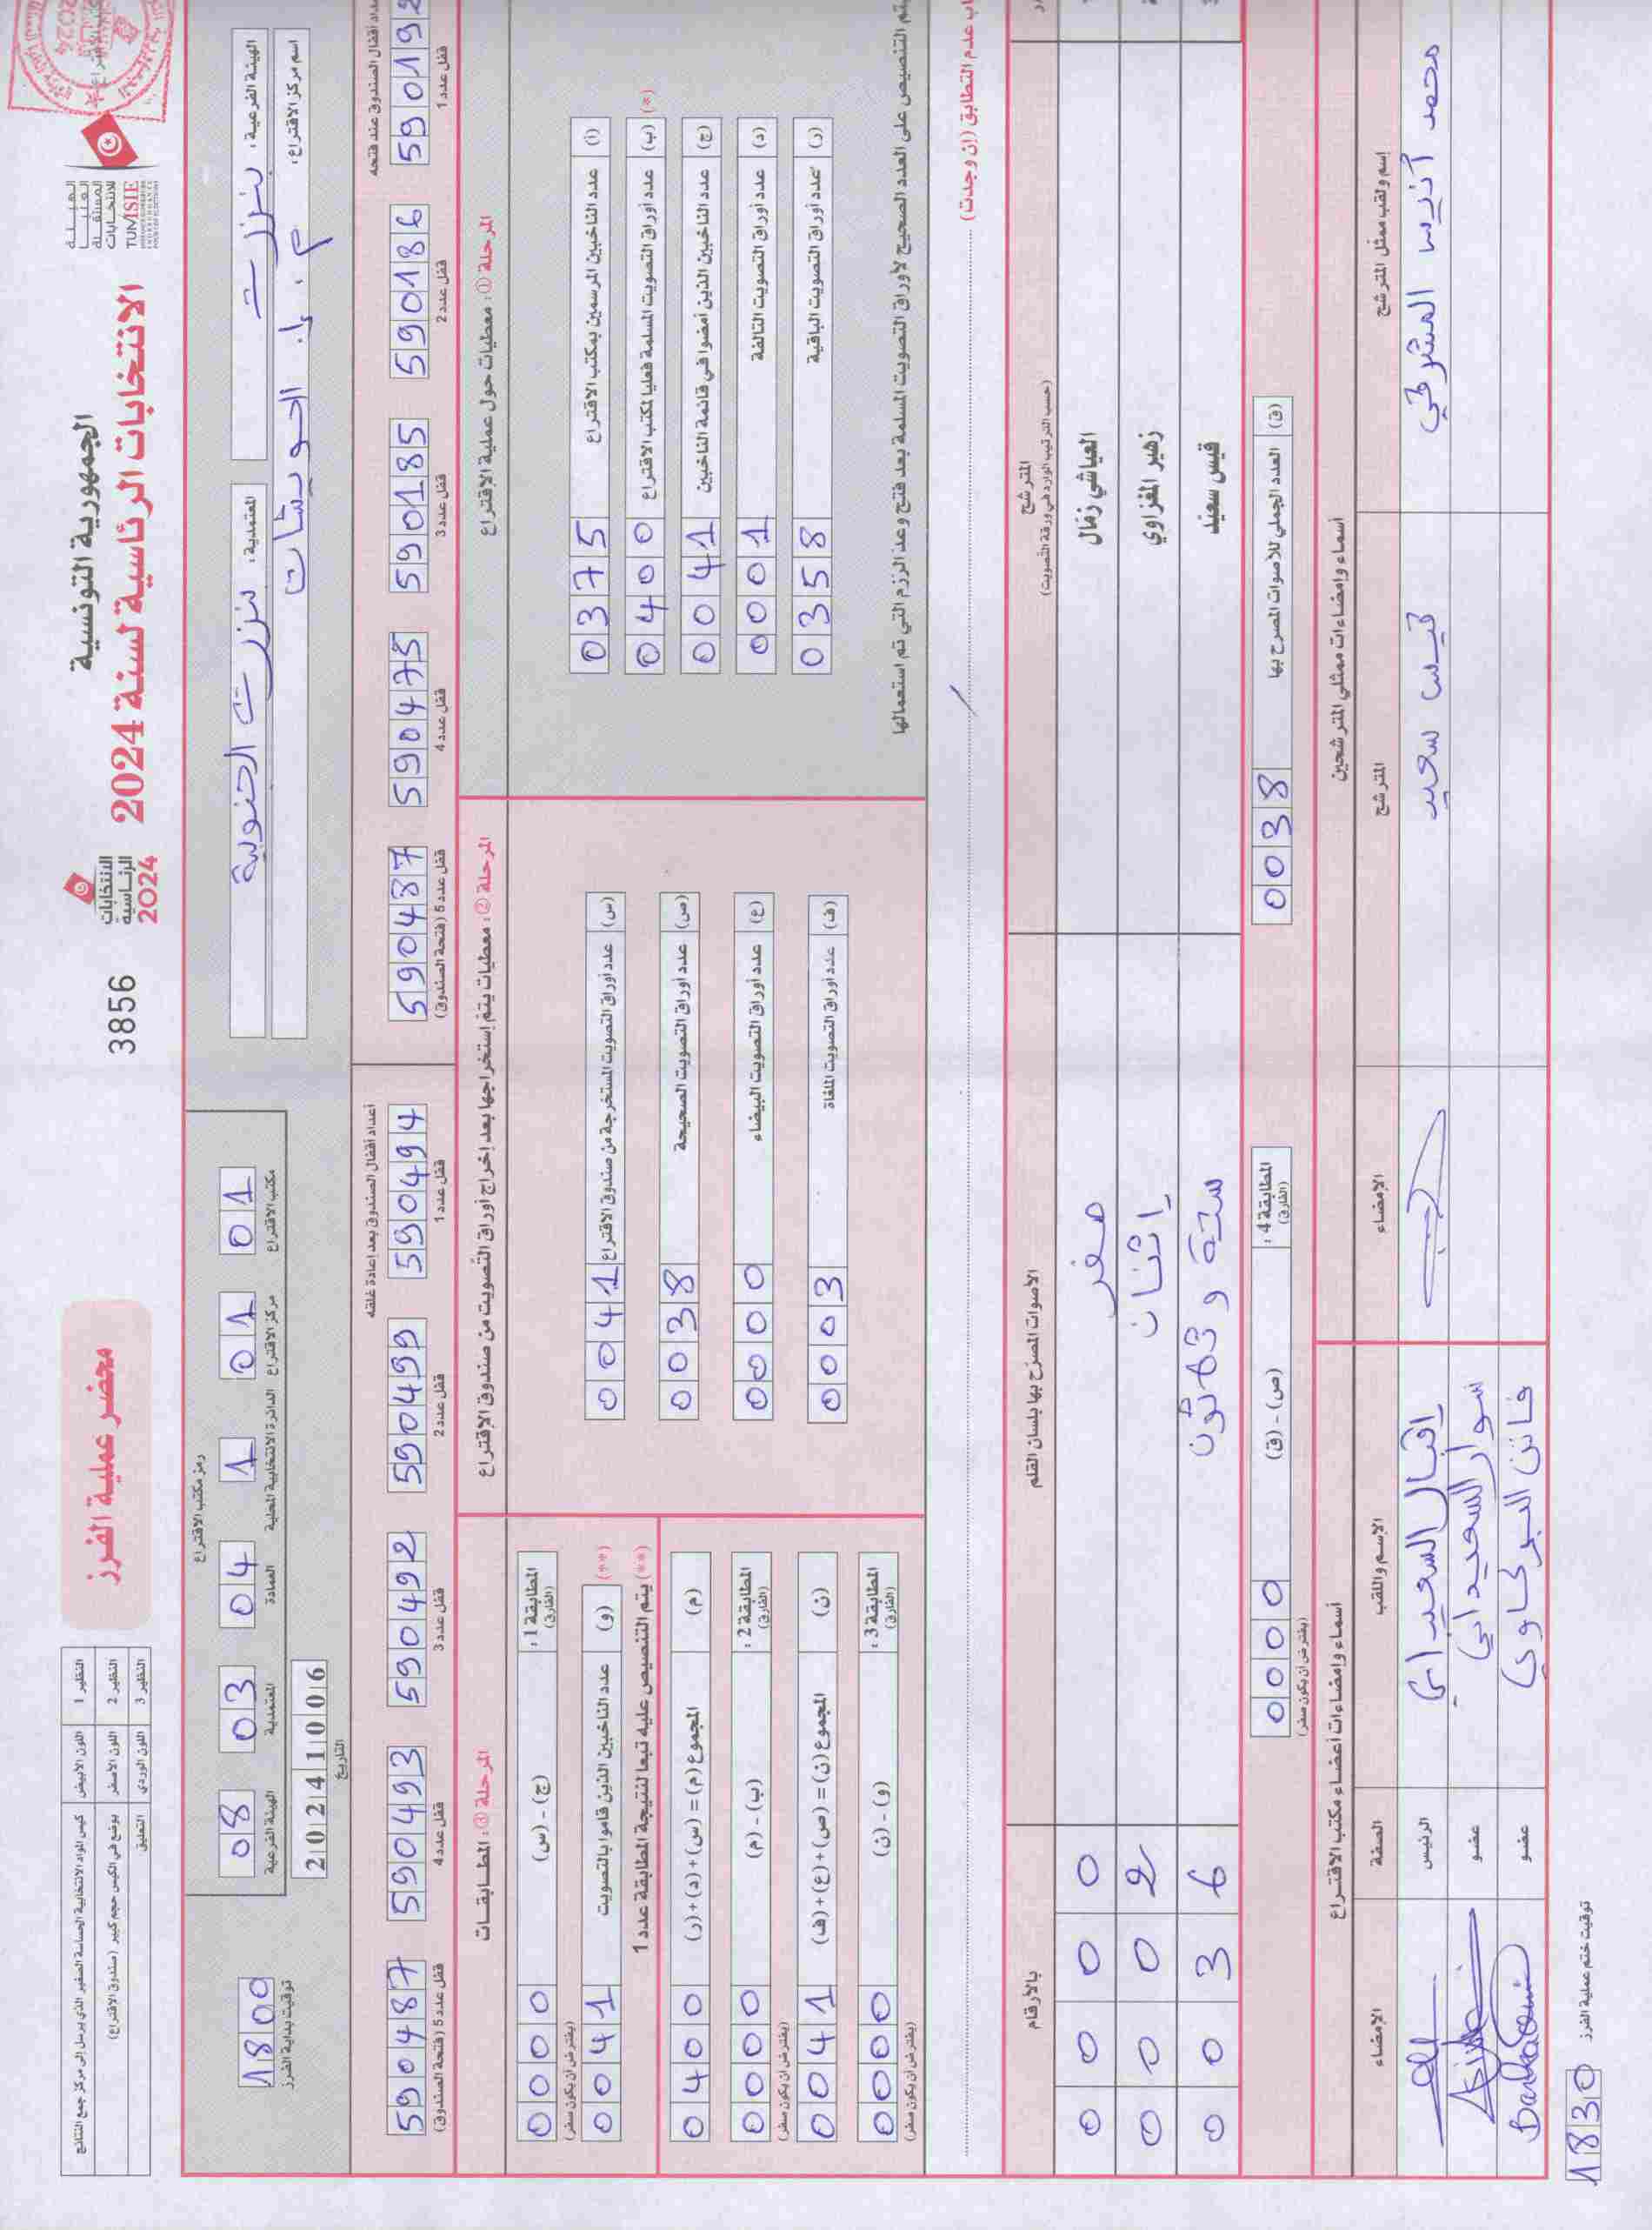 الجمهورية التونسية
الانتخابات الرئاسية لسنة 2024
الهيئة
العليا
المستقلة
للانتخابات
TUNISIE
الانتخابات
الرئاسية
2024
3856
محضر عملية الفرز
النظير 1 اللون الأبيض كيس المواد الانتخابية الحساسة الصغير الذي يرسل إلى مركز جمع النتائج
النظير 2 اللون الأصفر يوضع في الكيس حجم كبير (صندوق الاقتراع)
النظير 3 اللون الوردي التعليق
الهيئة الفرعية: بنزرت
المعتمدية: بنزرت الجنوبية
اسم مركز الاقتراع: م. إ. الحويشات
رمز مكتب الاقتراع
01 مكتب الاقتراع
01 مركز الاقتراع
1 الدائرة الانتخابية المحلية
04 العمادة
03 المعتمدية
08 الهيئة الفرعية
20241006
التاريخ
1800
توقيت بداية الفرز
أعداد أقفال الصندوق عند فتحه
قفل عدد 1
590186 قفل عدد 2
590185 قفل عدد 3
590475 قفل عدد 4
590437 قفل عدد 5 (فتحة الصندوق)
أعداد أقفال الصندوق بعد إعادة غلقه
590494 قفل عدد 1
590499 قفل عدد 2
590492 قفل عدد 3
590493 قفل عدد 4
590487 قفل عدد 5 (فتحة الصندوق)
المرحلة ①: معطيات حول عملية الاقتراع
(أ) عدد الناخبين المرسمين بمكتب الاقتراع 0375
(*) (ب) عدد أوراق التصويت المسلمة فعليا لمكتب الاقتراع 0400
(ج) عدد الناخبين الذين أمضوا في قائمة الناخبين 0041
(د) عدد أوراق التصويت التالفة 0001
(ر) عدد أوراق التصويت الباقية 0358
يتم التنصيص على العدد الصحيح لأوراق التصويت المسلمة بعد فتح وعد الرزم التي تم استعمالها
المرحلة ②: معطيات يتم إستخراجها بعد إخراج أوراق التصويت من صندوق الإقتراع
(س) عدد أوراق التصويت المستخرجة من صندوق الاقتراع 0041
(ص) عدد أوراق التصويت الصحيحة 0038
(ع) عدد أوراق التصويت البيضاء 0000
(ف) عدد أوراق التصويت الملغاة 0003
المرحلة ③: المطابقات
المطابقة 1: (الفارق) (ج) - (س) 0000
(يفترض أن يكون صفر)
(**) (و) عدد الناخبين الذين قاموا بالتصويت 0041
(**) يتم التنصيص عليه تبعا لنتيجة المطابقة عدد 1
(م) المجموع (م) = (س) + (د) + (ر) 0400
المطابقة 2: (الفارق) (ب) - (م) 0000
(يفترض أن يكون صفر)
(ن) المجموع (ن) = (ص) + (ع) + (ف) 0041
المطابقة 3: (الفارق) (و) - (ن) 0000
(يفترض أن يكون صفر)
عدم التطابق (إن وجدت)
المترشح
(حسب الترتيب الوارد في ورقة التصويت)
الأصوات المصرح بها بلسان القلم
بالأرقام
العياشي زمّال صفر 0000
زهير المغزاوي إثنان 0002
قيس سعيّد ستة وثلاثون 0036
(ق) العدد الجملي للأصوات المصرح بها 0038
المطابقة 4: (الفارق) (ص) - (ق) 0000
(يفترض أن يكون صفر)
أسماء وإمضاءات ممثلي المترشحين
إسم ولقب ممثل المترشح المترشح الإمضاء
قيس سعيد
أسماء وإمضاءات أعضاء مكتب الاقتراع
الإسم واللقب الصفة الإمضاء
اقبال السعيداني الرئيس
سوار السعيداني عضو
فاتن البركاوي عضو
توقيت ختم عملية الفرز 1830